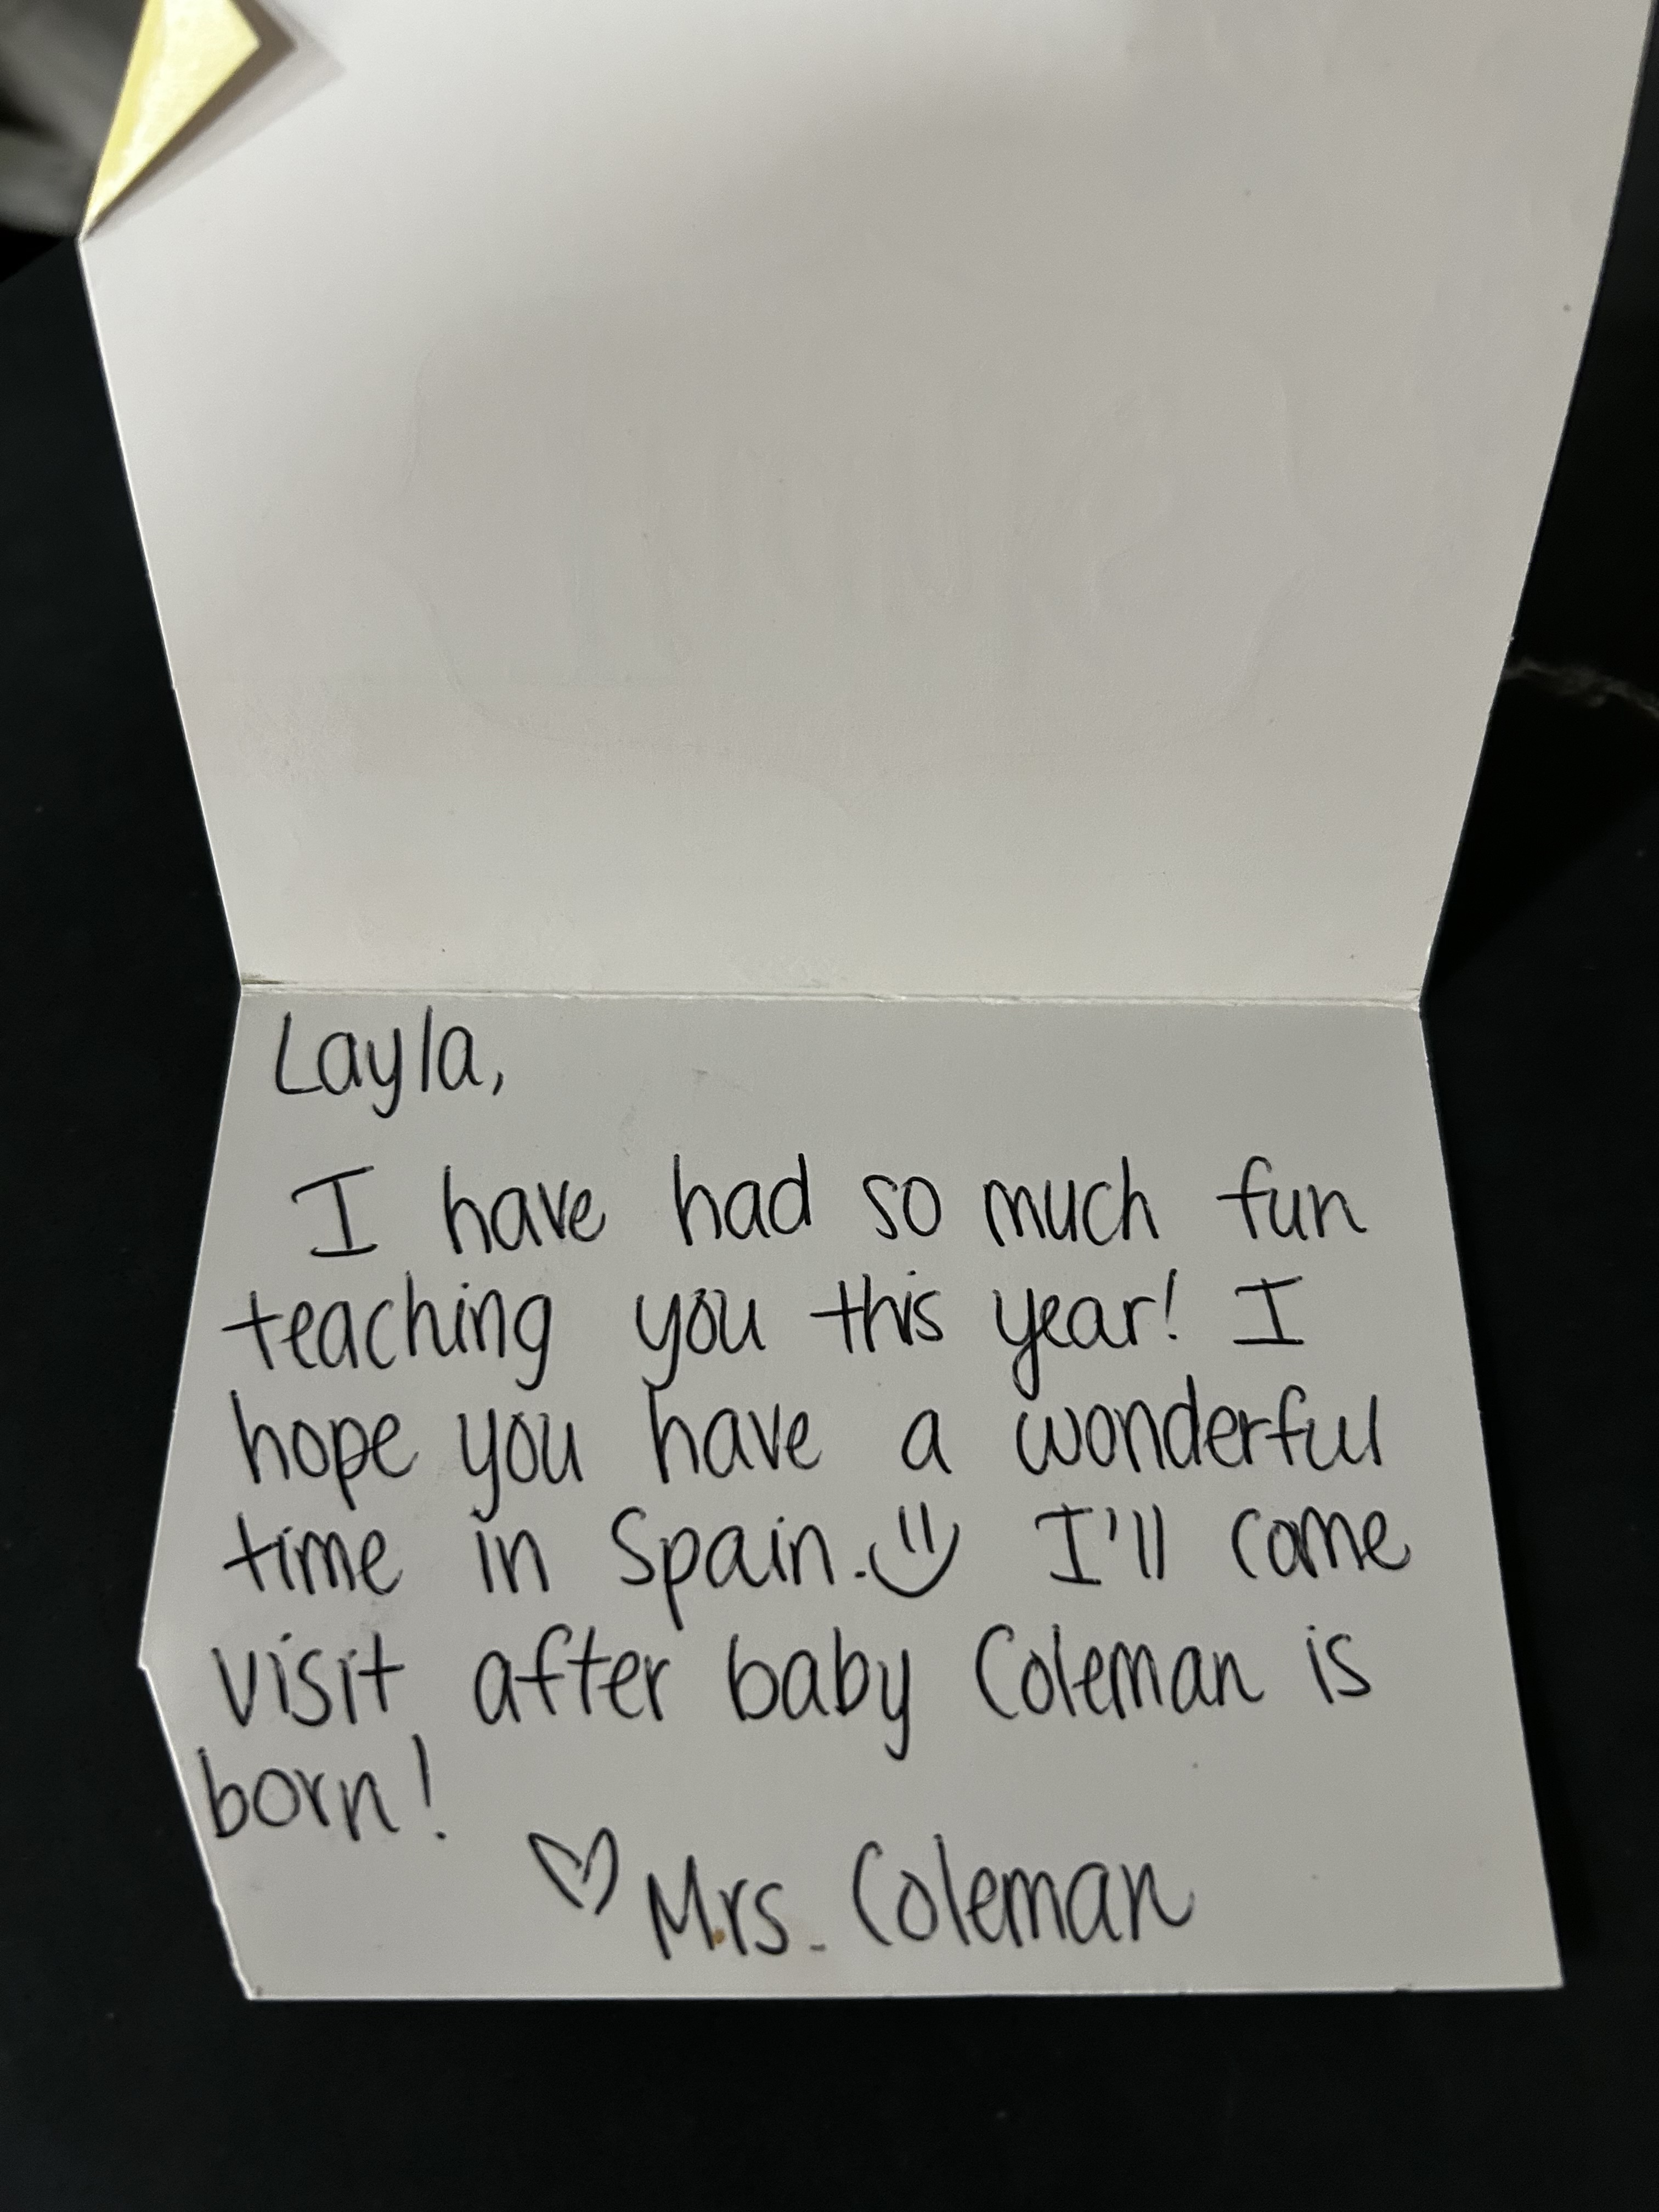 Layla,
I have had so much fun
teaching you this year! I
hope you have a wonderful
time in Spain. I'll come
visit after baby Coleman is
born!
Mrs. Coleman